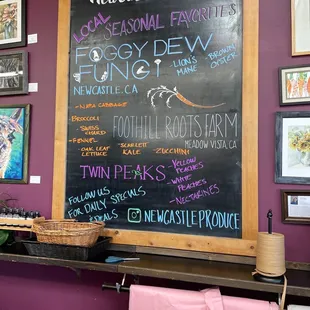 LOCAL SEASONAL FAVORITES
FOGGY DEW
FUNGI
~LION'S MANE
~BROWN OYSTER
NEWCASTLE, CA
~NAPA CABBAGE
~BROCCOLI
~SWISS CHARD
~FENNEL
~OAK LEAF LETTUCE
~SCARLETT KALE
~ZUCCHINI
FOOTHILL ROOTS FARM
MEADOW VISTA, CA
TWIN PEAKS
~YELLOW PEACHES
~WHITE PEACHES
~NECTARINES
FOLLOW US
FOR DAILY SPECIALS
& DEALS
@NEWCASTLEPRODUCE